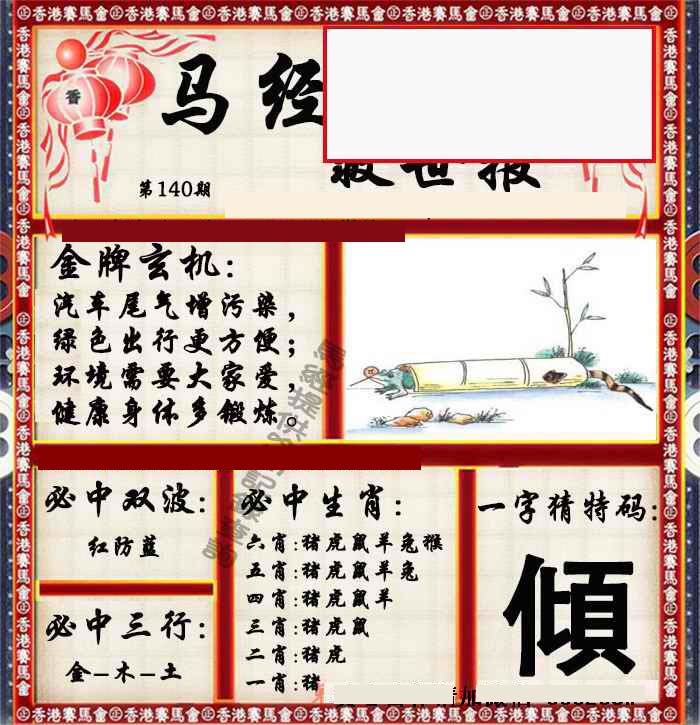 香港賽馬會
香
马经
救世报
第140期
金牌玄机:
汽车尾气增污染，
绿色出行更方便；
环境需要大家爱，
健康身体多锻炼。
必中双波:
红防蓝
必中三行:
金-木-土
必中生肖:
六肖:猪虎鼠羊兔猴
五肖:猪虎鼠羊兔
四肖:猪虎鼠羊
三肖:猪虎鼠
二肖:猪虎
一肖:猪
一字猜特码:
傾